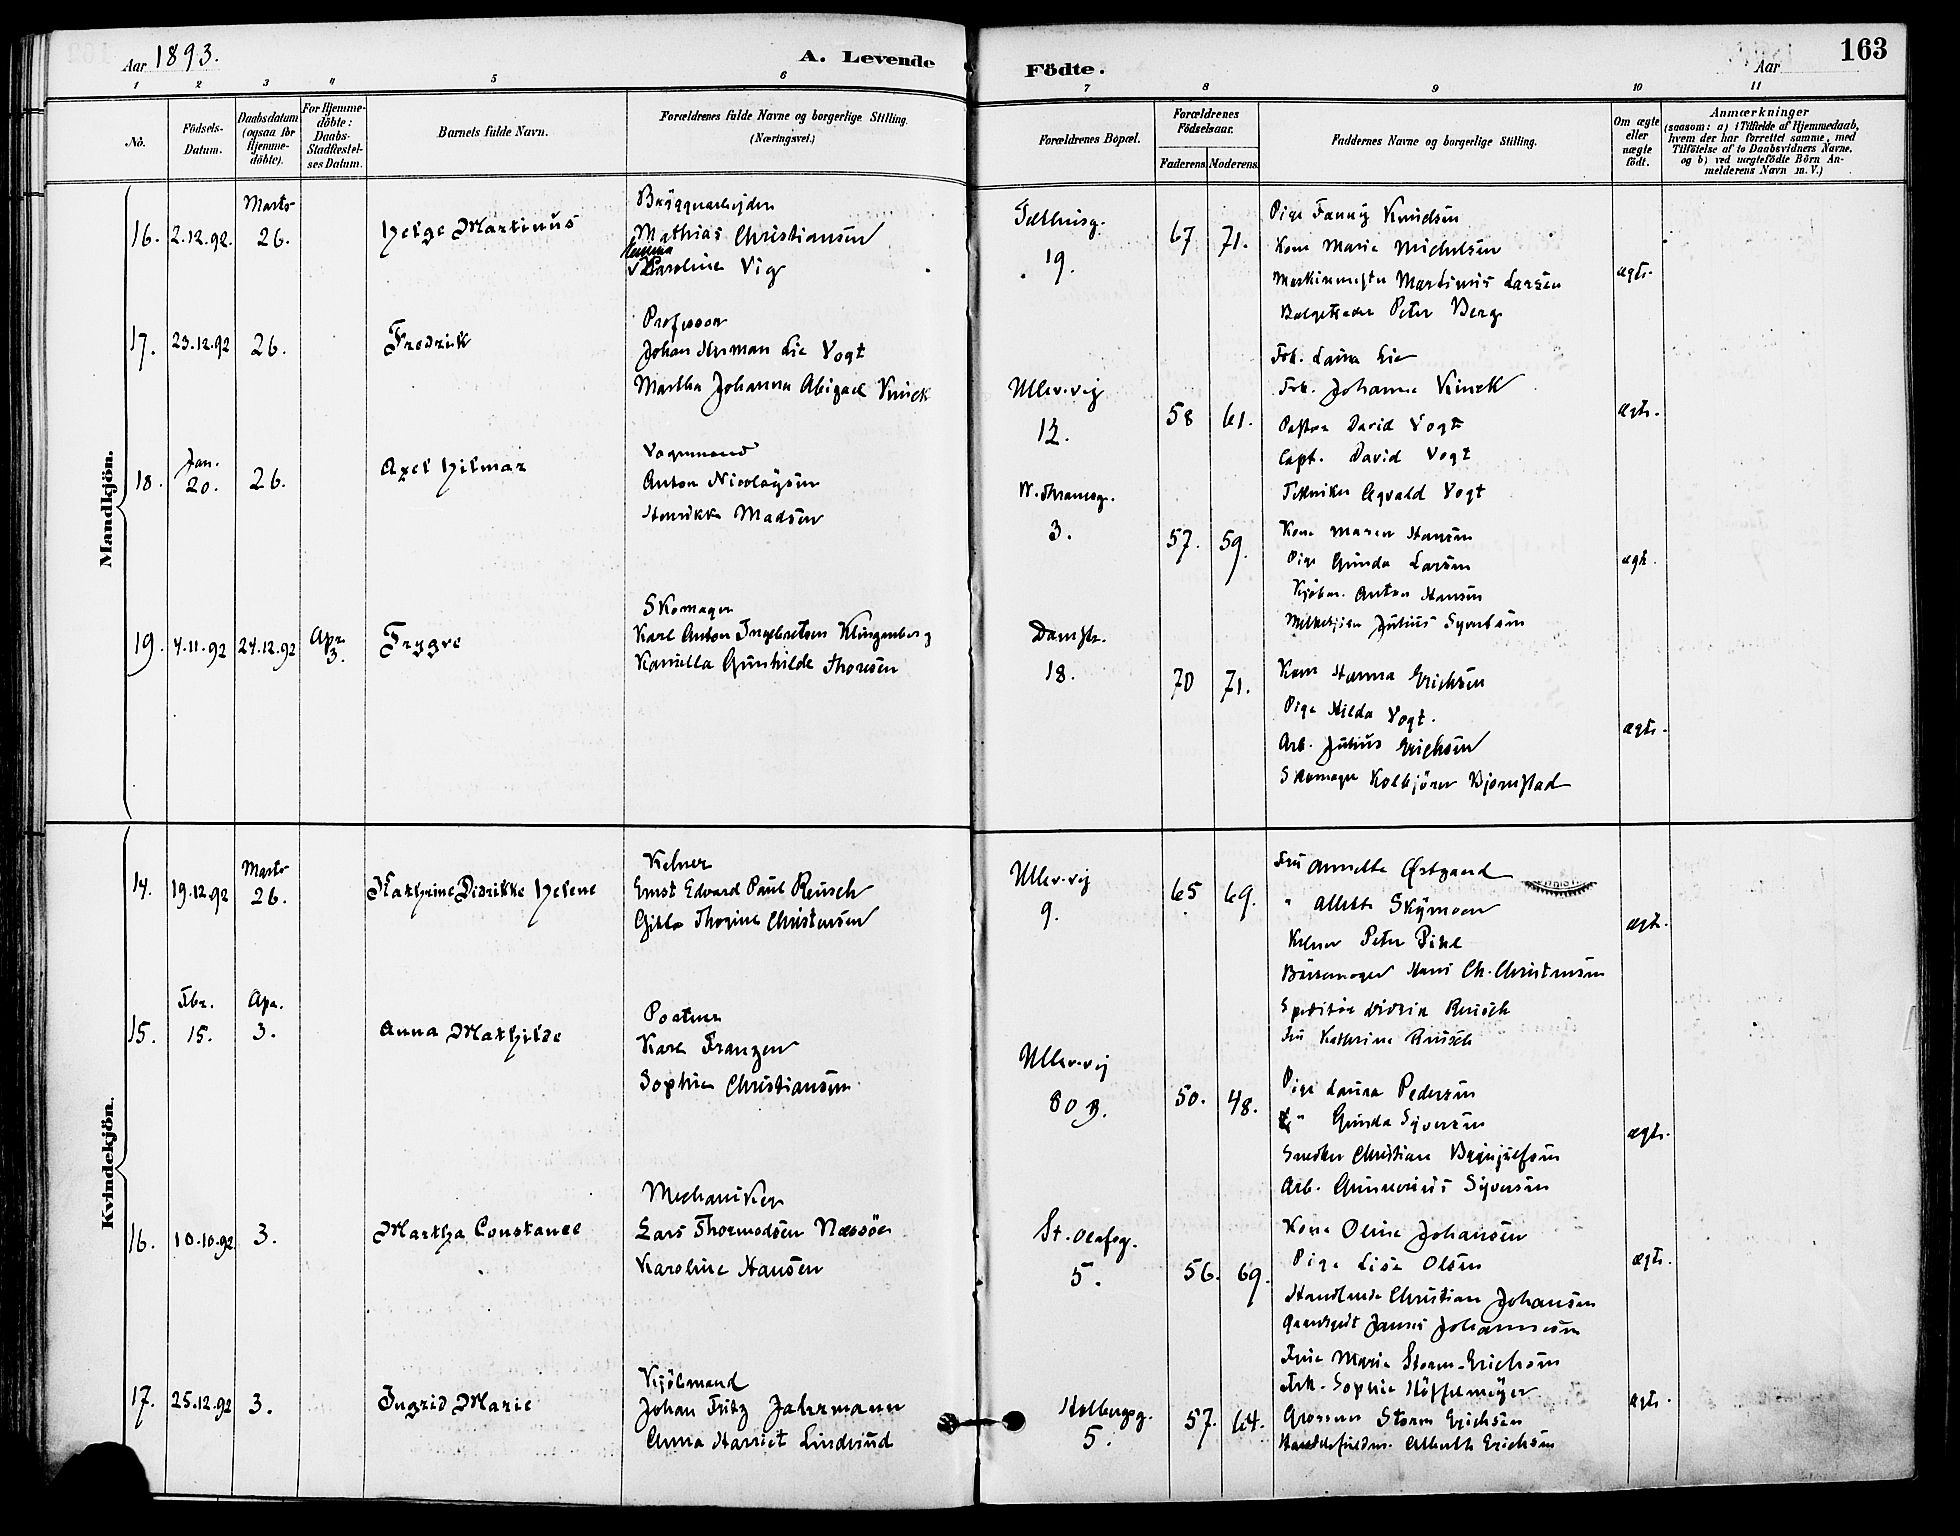 Aar 1893.
A. Levende
Födte.
Aar
163
1 2 3 4 5 6 7 8 9 10 11
No.
Födsels-Datum.
Daabsdatum (ogsaa for Hjemmedöbte).
For Hjemmedöbte: Daabs-Stadfestelses Datum.
Barnets fulde Navn.
Forældrenes fulde Navne og borgerlige Stilling. (Næringsvei.)
Forældrenes Bopæl.
Forældrenes Födselsaar.
Faderens Moderens
Faddernes Navne og borgerlige Stilling.
Om ægte eller uægte födt.
Anmærkninger
(saasom: a) i Tilfælde af Hjemmedaab, hvem der har forrettet samme, med Tilföielse af to Daabsvidners Navne, og b) ved uægtefödte Börn Anmelderens Navn m. V.)
Mandkjön.
16. 2.12.92. Marts 26. Helge Martinus
Bryggearbejder
Mathias Christiansen
Karoline Vig
19.
67 71.
Pige Fanny Knudsen
Kone Marie Michelsen
Martinus Larsen
Peter Berg
ægte.
17. 23.12.92 26. Fredrik
Professor
Johan Herman Lie Vogt
Martha Johanna Abigael Kinck
Ullev.vej
12.
58 61.
Frk. Laura Lie
Frk. Johanne Kinck
Pastor David Vogt
Capt. David Vogt
Tekniker Vogt
ægte.
18. Jan. 20. 26. Axel Hilmar
Vognmand
Anton Nicolaysen
Henrikke Madsen
W. Thranesg.
3.
57. 59.
Kone Maren Hansen
Pige Gunda Larsen
Kjøbm. Anton Hansen
Julius Syvertsen
ægte.
19. 4.11.92 24.12.92 Apr. 3. Trygve
Skomager
Karl Anton Ingebretsen Klingenberg
Kamilla Gunhilde Thoresen
Damstr.
18.
70 71.
Kone Hanna Erichsen
Pige Hilda Vogt.
Arb. Julius Erichsen
Skomager Kolbjörn Bjørnstad
ægte.
Kvindekjön.
14. 19.12.92 Marts 26. Kathrine Didrikke Helene
Kelner
Ernst Edvard Paul Reusch
Thorine Christensen
Ullev.vej
9.
65 69.
Fru Annette Østgaard
" Allette Skymoen
Kelner Peter Pihl
Børsemager Hans Chr. Christensen
Speditør Didrik Reusch
Fru Kathrine Reusch
ægte.
15. Fbr. 15. Apr. 3. Anna Mathilde
Postur
Karl Franzen
Sophie Christiansen
Ullev.vej
80 B.
50. 48.
Pige Laura Pedersen
" Gunda Syversen
Snedker Christian Brynjulfsen
Arb. Gunnerius Syversen
ægte.
16. 10.10.92 3. Martha Constance
Mechaniker
Lars Thormodsen Næssöe
Karoline Hansen
St. Olafsg.
5.
56. 69.
Kone Oline Johansen
Pige Lise Olsen
Handlende Christian Johansen
Johannesen
ægte.
17. 25.12.92 3. Ingrid Marie
Kjöbmand
Johan Fritz Jahrmann
Anna Harriet Lindvud
Holbergsg.
5.
57. 64.
Frue Marie Storm-Erichsen
Frk. Sophie Höffelmeyer
Grosserer Storm Erichsen
Handelsfuldm. Albert Erichsen
ægte.